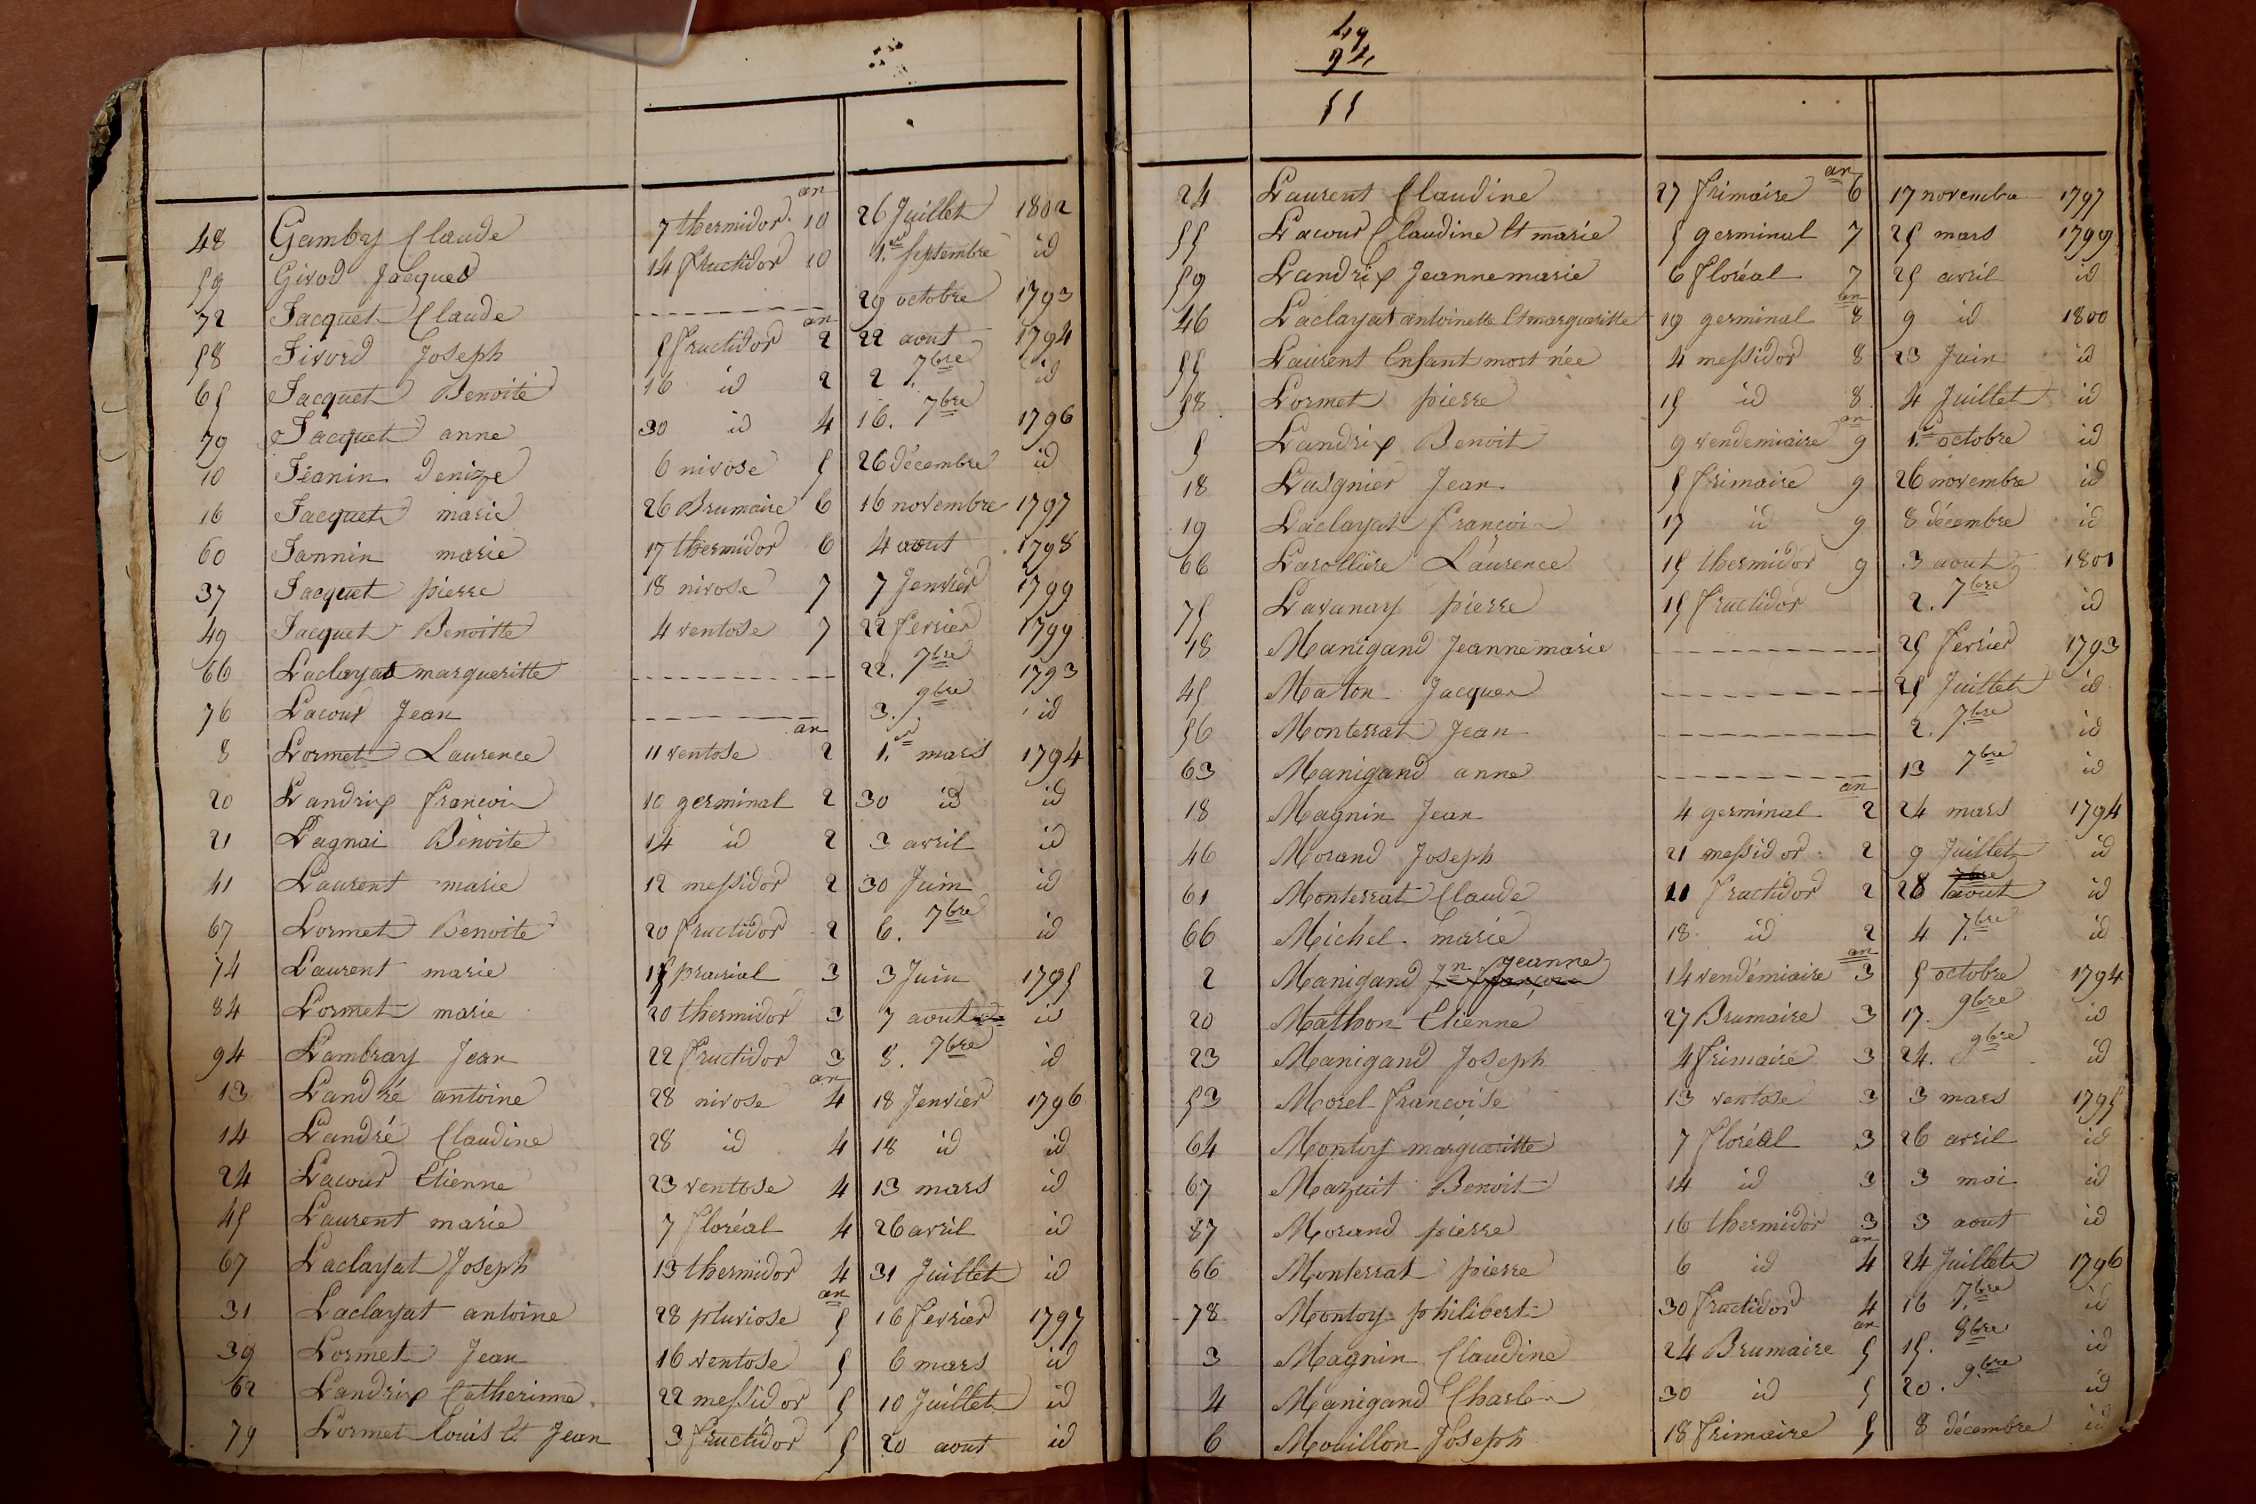 48 Gamby Claude 7 thermidor an 10 26 Juillet 1802
59 Givod Jacques 14 fructidor 10 1.er septembre id
72 Jacquet Claude 29 octobre 1793
58 Jivord Joseph 5 fructidor an 2 22 aout 1794
65 Jacquet Benoite 16 id 2 2 7.bre id
79 Jacquet anne 30 id 4 16. 7bre 1796
10 Jeanin Denize 6 nivose 5 26 décembre id
16 Jacquet marie 26 Brumaire 6 16 novembre 1797
60 Jannin marie 17 thermidor 6 4 aout 1798
37 Jacquet pierre 18 nivose 7 7 Jenvier 1799
49 Jacquet Benoitte 4 ventose 7 22 fevrier 1799
66 Laclayat margueritte 22. 7bre 1793
76 Lacour Jean 3. 9bre id
8 Lormet Laurence 11 ventose an 2 1.er mars 1794
20 Landrix françois 10 germinal 2 30 id id
21 Lagnai Bénoite 14 id 2 3 avril id
41 Laurent marie 12 messidor 2 30 Juin id
67 Lormet Benoite 20 fructidor 2 6. 7bre id
74 Laurent marie 15 prarial 3 3 Juin 1795
84 Lormet marie 20 thermidor 3 7 aout id
94 Lambray Jean 22 fructidor 3 8. 7bre id
13 Landré antoine 28 nivose an 4 18 Jenvier 1796
14 Landré Claudine 28 id 4 18 id id
24 Lacour Etienne 23 ventose 4 13 mars id
45 Laurent marie 7 floréal 4 26 avril id
67 Laclayat Joseph 13 thermidor 4 31 Juillet id
31 Laclayat antoine 28 pluviose an 5 16 fevrier 1797
39 Lormet Jean 16 ventose 5 6 mars id
62 Landrix Catherinne 22 messidor 5 10 Juillet id
79 Lormet louis et Jean 3 fructidor 5 20 aout id
49
94
55
24 Laurent Claudine 27 frimaire an 6 17 novembre 1797
55 Lacour Claudine et marie 5 germinal 7 25 mars 1799
59 Landrix Jeanne marie 6 floréal 7 25 avril id
46 Laclayat antoinette et margueritte 19 germinal an 8 9 id 1800
55 Laurent Enfant mort née 4 messidor 8 23 Juin id
58 Lormet pierre 15 id 8 4 Juillet id
5 Landrix Benoit 9 vendemiaire an 9 1.er octobre id
18 Lasgnier Jean 5 frimaire 9 26 novembre id
19 Laclayat françois 17 id 9 8 décembre id
66 Larollière Laurence 15 thermidor 9 3 aout 1801
75 Lavanay pierre 15 fructidor 2. 7bre id
18 Manigand Jeanne marie 25 fevrier 1793
45 Maton Jacques 25 Juillet id
56 Monterrat Jean 2. 7.bre id
63 Manigand anne 13 7bre id
18 Magnin Jean 4 germinal an 2 24 mars 1794
46 Morand Joseph 21 messidor 2 9 Juillet id
61 Monterrat Claude 11 fructidor 2 28 7bre aout id
66 Michel marie 18 id 2 4 7.bre id
2 Manigand Jeanne 14 vendémiaire an 3 5 octobre 1794
20 Mathon Etienne 27 Brumaire 3 17. 9bre id
23 Manigand Joseph 4 frimaire 3 24. 9bre id
53 Morel francoise 13 ventose 3 3 mars 1795
64 Montoy margueritte 7 floréal 3 26 avril id
67 Mazuit Benoit 14 id 3 3 mai id
87 Morand pierre 16 thermidor 3 3 aout id
66 Monterrat pierre 6 id an 4 24 Juillet 1796
78 Montoy philibert 30 fructidor 4 16 7.bre id
3 Magnin Claudine 24 Brumaire an 5 15. 9bre id
4 Manigand Charles 30 id 5 20. 9.bre id
6 Mouillon Joseph 18 frimaire 5 8 décembre id